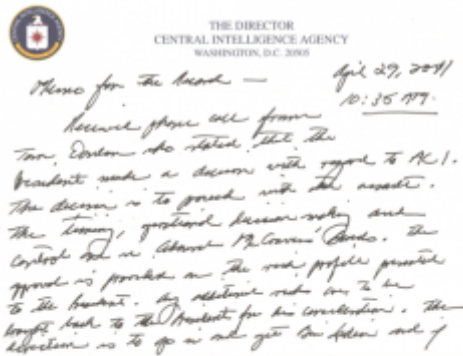 THE DIRECTOR
CENTRAL INTELLIGENCE AGENCY
WASHINGTON, D.C. 20505
Memo for the Record —
April 29, 2011
10:35 AM.
Received phone call from
Tom Donilon who stated that the
President made a decision with regard to AC 1.
The decision is to proceed with the assault.
The timing, operational decision making and
control are in Admiral McRaven's hands. The
approval is provided on the risk profile presented
to the President. Any additional risks are to be
brought back to the President for his consideration. The
direction is to go in and get Bin Laden and if